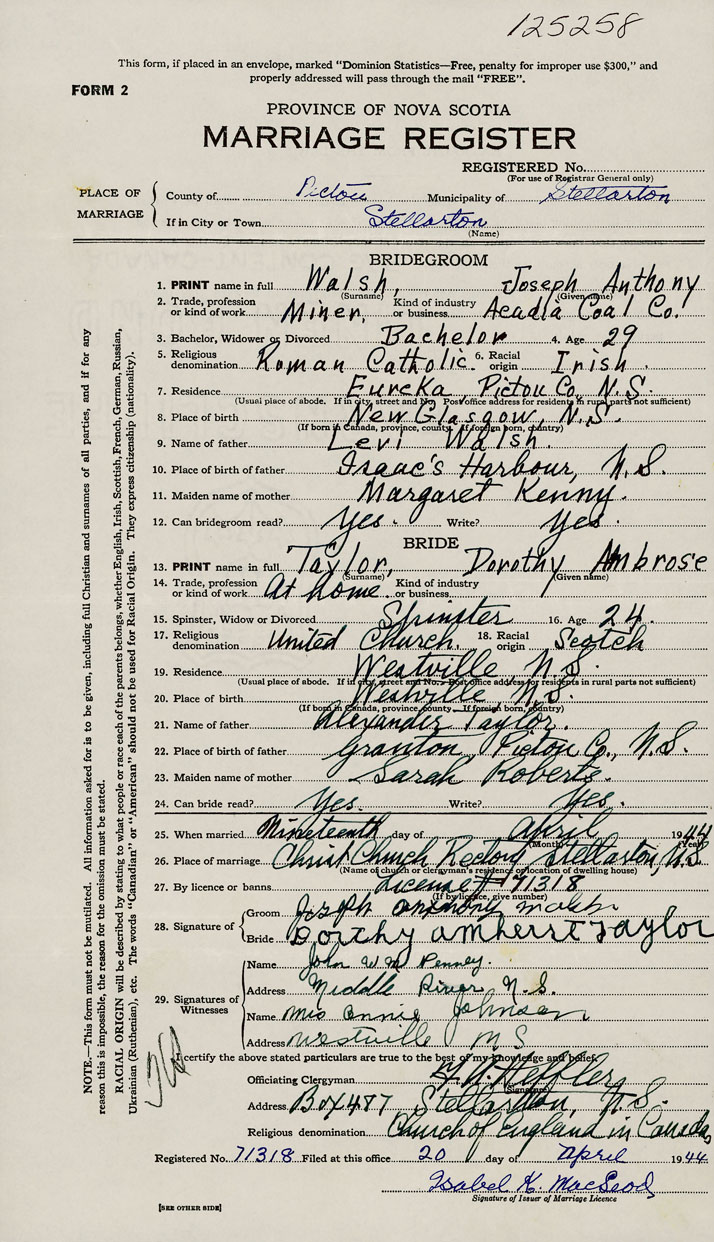 125258
This form, if placed in an envelope, marked "Dominion Statistics—Free, penalty for improper use $300," and
properly addressed will pass through the mail "FREE".
FORM 2
PROVINCE OF NOVA SCOTIA
MARRIAGE REGISTER
REGISTERED No.
(For use of Registrar General only)
PLACE OF MARRIAGE
County of Pictou Municipality of Stellarton
If in City or Town Stellarton
(Name)
BRIDEGROOM
1. PRINT name in full Walsh, Joseph Anthony
(Surname) (Given name)
2. Trade, profession or kind of work Miner, Kind of industry or business Acadia Coal Co.
3. Bachelor, Widower or Divorced Bachelor 4. Age 29
5. Religious denomination Roman Catholic. 6. Racial origin Irish
7. Residence Eureka, Pictou Co., N.S.
(Usual place of abode. If in city, street and No. Post office address for residents in rural parts not sufficient)
8. Place of birth New Glasgow, N.S.
(If born in Canada, province, county. If foreign born, country)
9. Name of father Levi Walsh.
10. Place of birth of father Isaac's Harbour, N.S.
11. Maiden name of mother Margaret Kenny.
12. Can bridegroom read? Yes. Write? Yes.
BRIDE
13. PRINT name in full Taylor, Dorothy Ambrose
(Surname) (Given name)
14. Trade, profession or kind of work At home Kind of industry or business
15. Spinster, Widow or Divorced Spinster 16. Age 24.
17. Religious denomination United Church. 18. Racial origin Scotch
19. Residence Westville, N.S.
(Usual place of abode. If in city, street and No. Post office address for residents in rural parts not sufficient)
20. Place of birth Westville N.S.
(If born in Canada, province, county. If foreign born, country)
21. Name of father Alexander Taylor.
22. Place of birth of father Granton, Pictou Co., N.S.
23. Maiden name of mother Sarah Roberts.
24. Can bride read? Yes. Write? Yes.
25. When married Nineteenth day of April 1944
(Month) (Year)
26. Place of marriage Christ Church Rectory Stellarton, N.S.
(Name of church or clergyman's residence or location of dwelling house)
27. By licence or banns License # 71318
(If by licence, give number)
28. Signature of
Groom Joseph Anthony Walsh
Bride Dorthy amherst Taylor
29. Signatures of Witnesses
Name John Wm Penney.
Address Middle River N.S.
Name Mrs Annie Johnson
Address Westville N S
I certify the above stated particulars are true to the best of my knowledge and belief.
Officiating Clergyman
(Signature)
Address Box 487 Stellarton, N.S.
Religious denomination Church of England in Canada
Registered No. 71318 Filed at this office 20 day of April 1944
Isabel K. MacLeod
Signature of Issuer of Marriage Licence
[SEE OTHER SIDE]
NOTE.—This form must not be mutilated. All information asked for is to be given, including full Christian and surnames of all parties, and if for any
reason this is impossible, the reason for the omission must be stated.
RACIAL ORIGIN will be described by stating to what people or race each of the parents belongs, whether English, Irish, Scottish, French, German, Russian,
Ukrainian (Ruthenian), etc. The words "Canadian" or "American" should not be used for Racial Origin. They express citizenship (nationality).